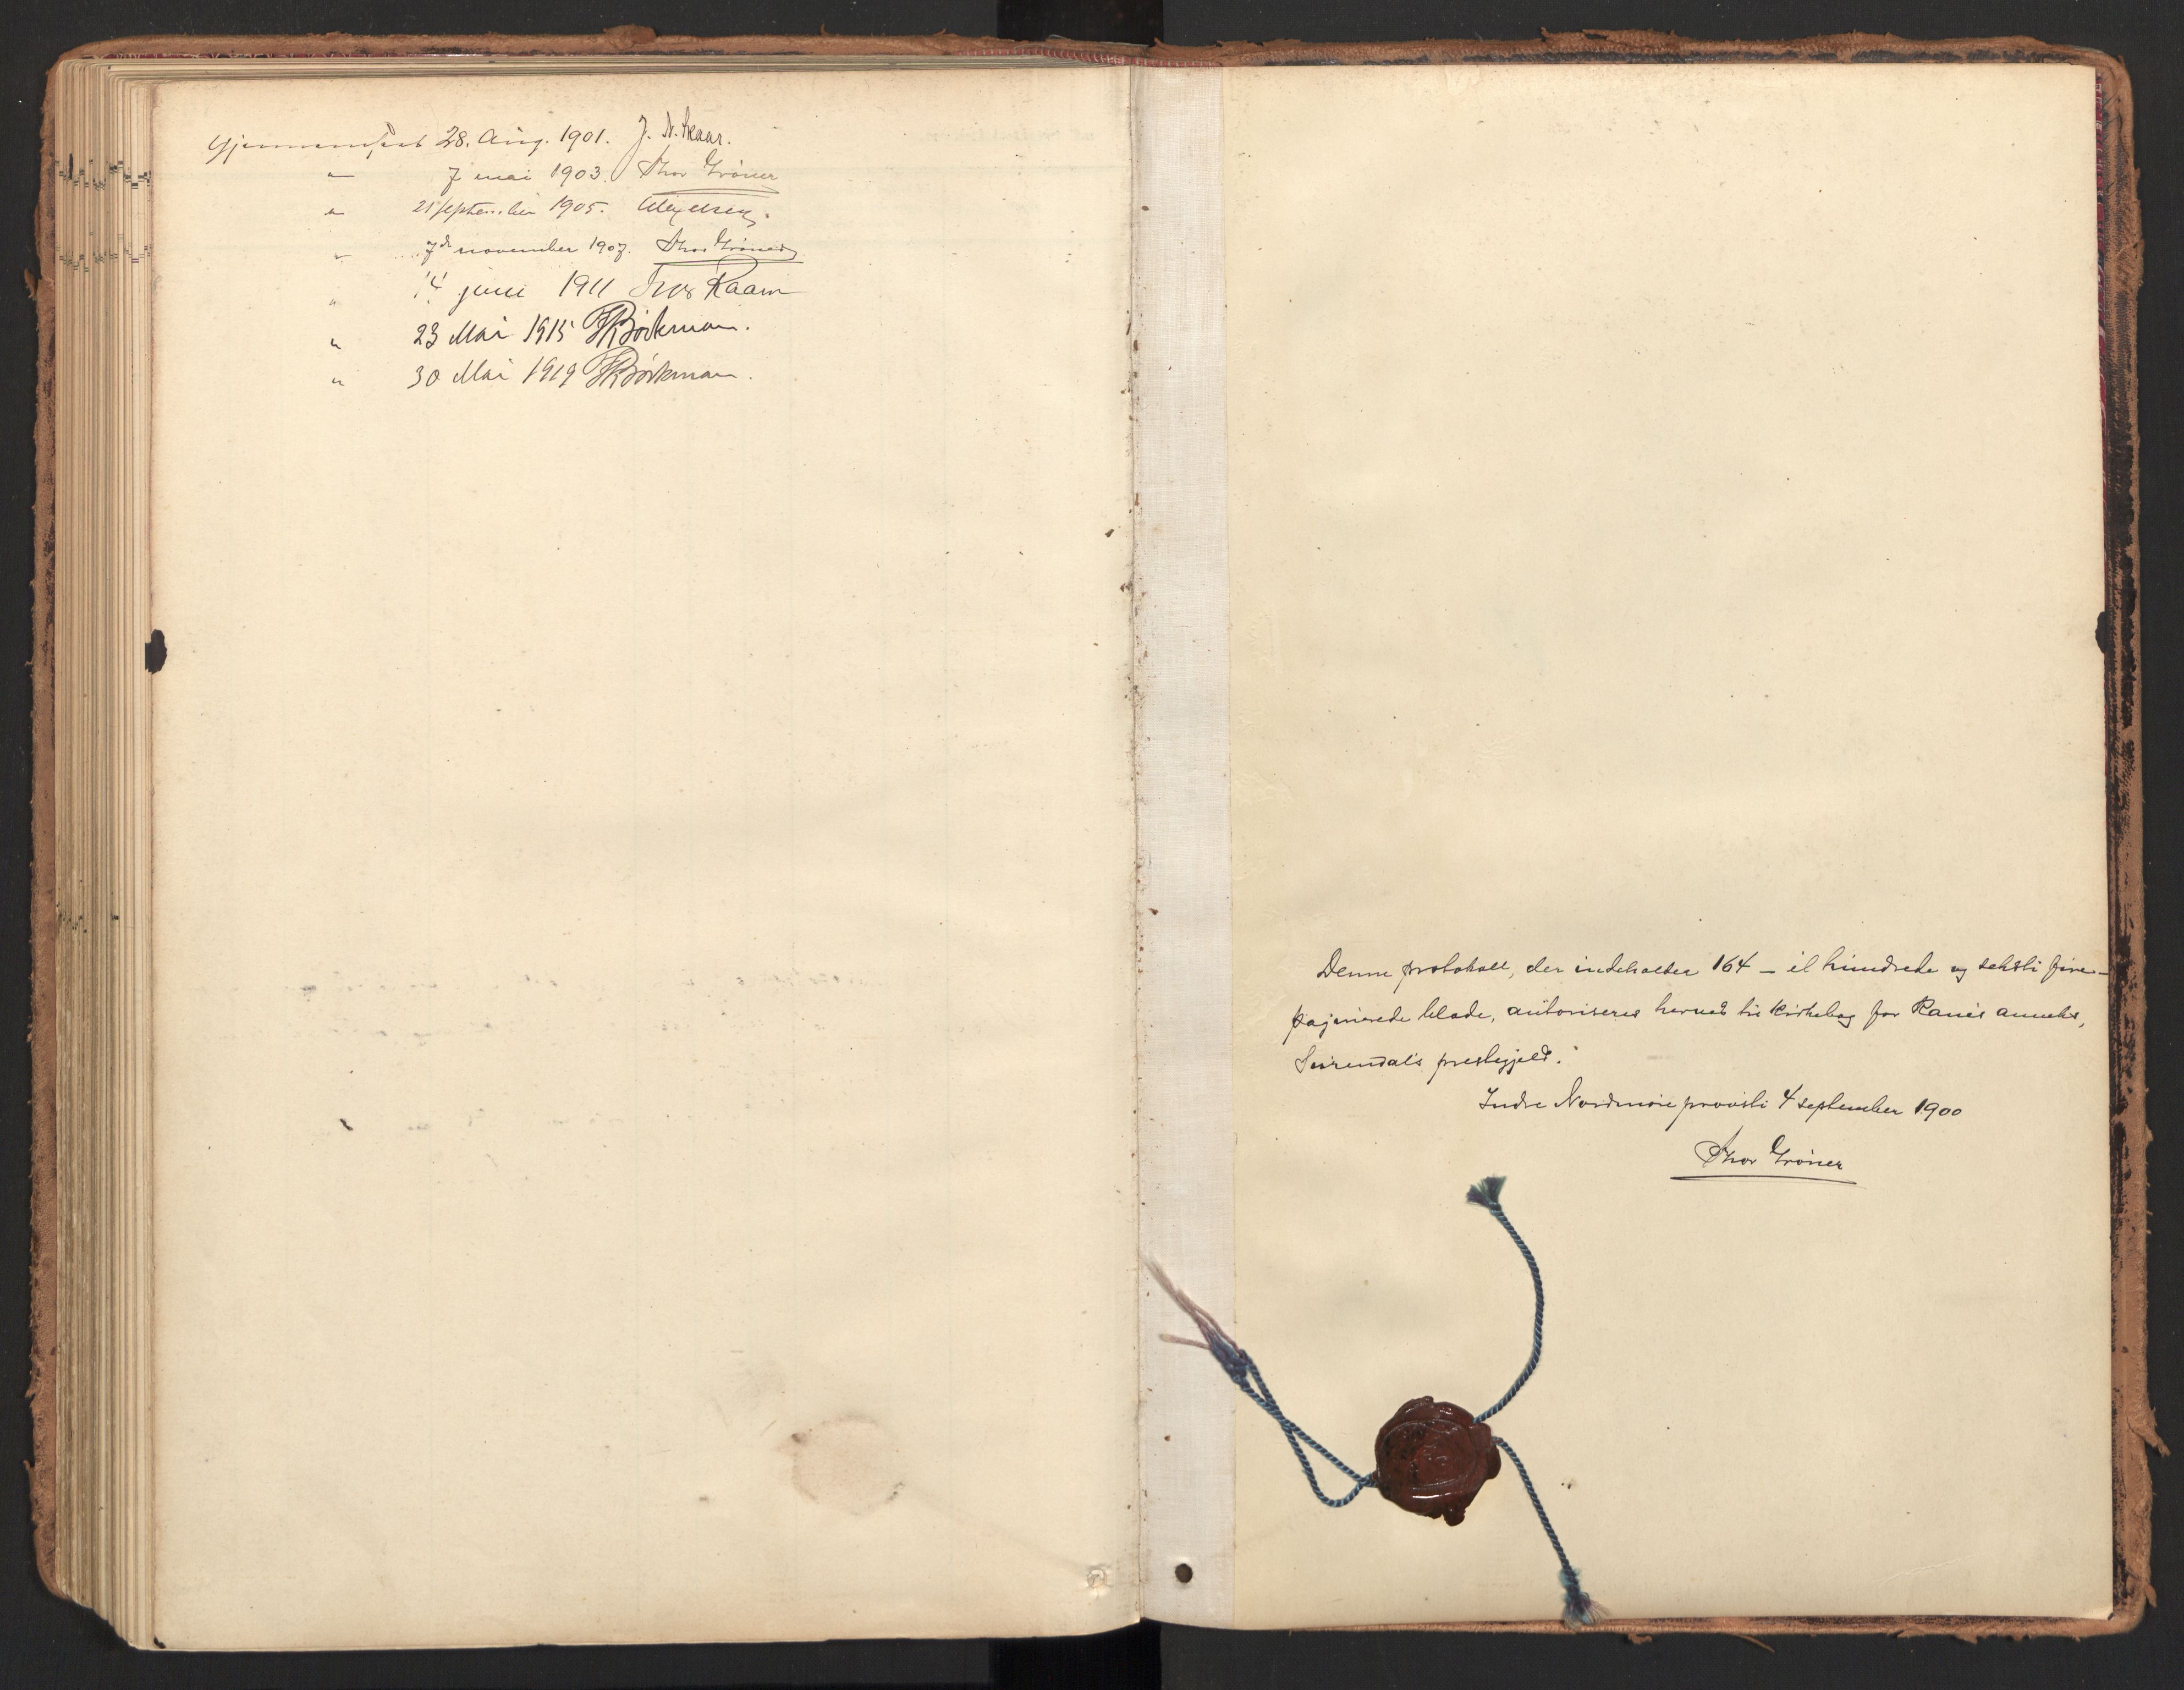 Gjennemseet 28. Aug. 1901. J. N. Skaar.
" 7 mai 1903. Thor Gröner
" 21 september 1905.
" 7de november 1907. Thor Gröner
" 14 juni 1911 Raam
" 23 Mai 1915 Björkman.
" 30 Mai 1919 Björkman.
Denne protokoll, der indeholder 164 – et hundrede og seksti fire –
paginerede blade, autoriseres herved til kirkebog for Ranes anneks,
Surendals prestegjeld.
Indre Nordmöre provsti 4 september 1900
Thor Gröner